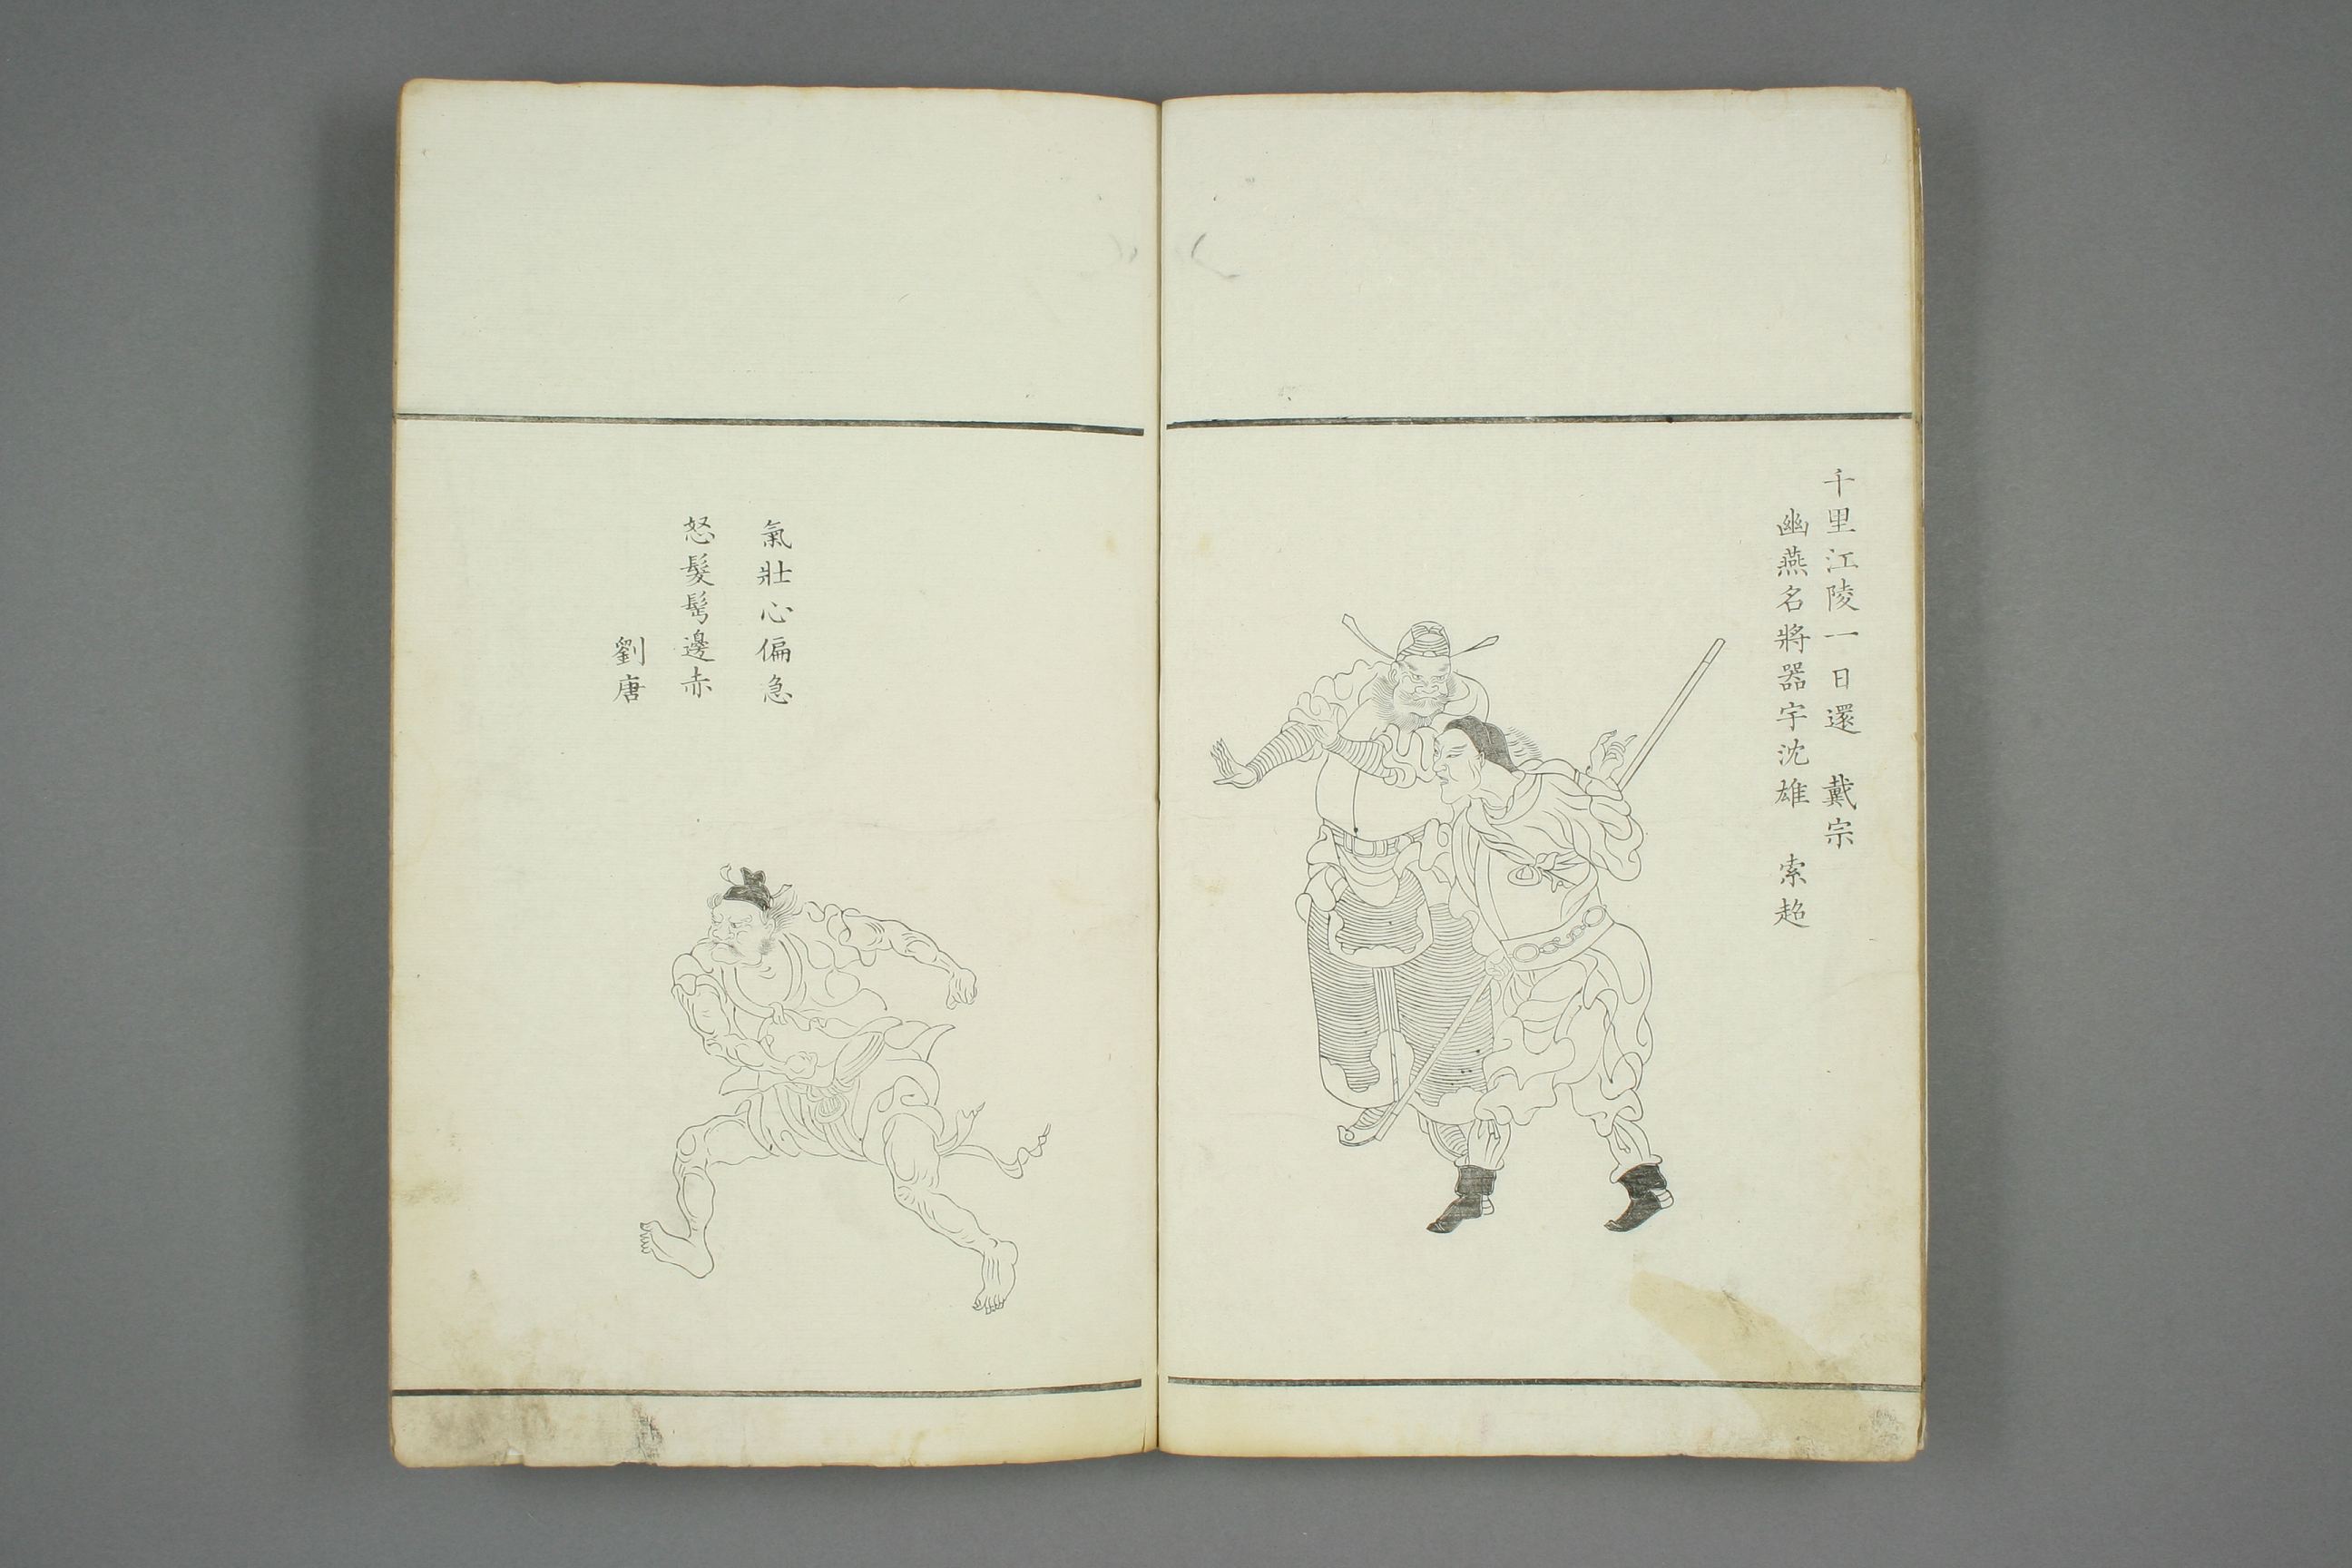 千里江陵一日還　戴宗
幽燕名將器宇沈雄　索超
氣壯心偏急
怒髮髩邊赤
劉唐